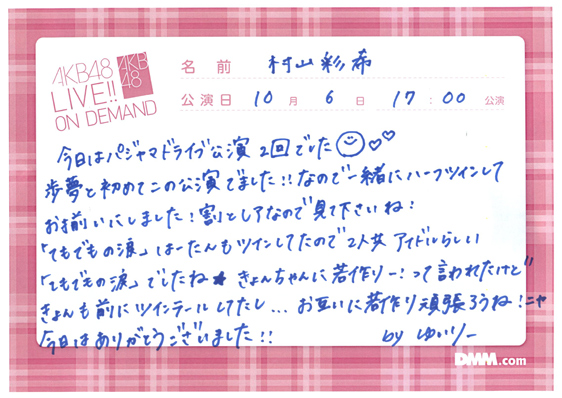 AKB48
LIVE!!
ON DEMAND
AKB
48
名前 村山彩希
公演日 10月 6日 17:00 公演
今日はパジャマドライブ公演2回でした
歩夢と初めてこの公演でました!!なので一緒にハーフツインして
お揃いにしました!割とレアなので見て下さいね!
「てもでもの涙」はーたんもツインしてたので2人共アイドルらしい
「てもでもの涙」でしたね★ きょんちゃんに若作りー!って言われたけど
きょんも前にツインテールしてたし...お互いに若作り頑張ろうね!ニヤ
今日はありがとうございました!! by ゆいりー
DMM.com